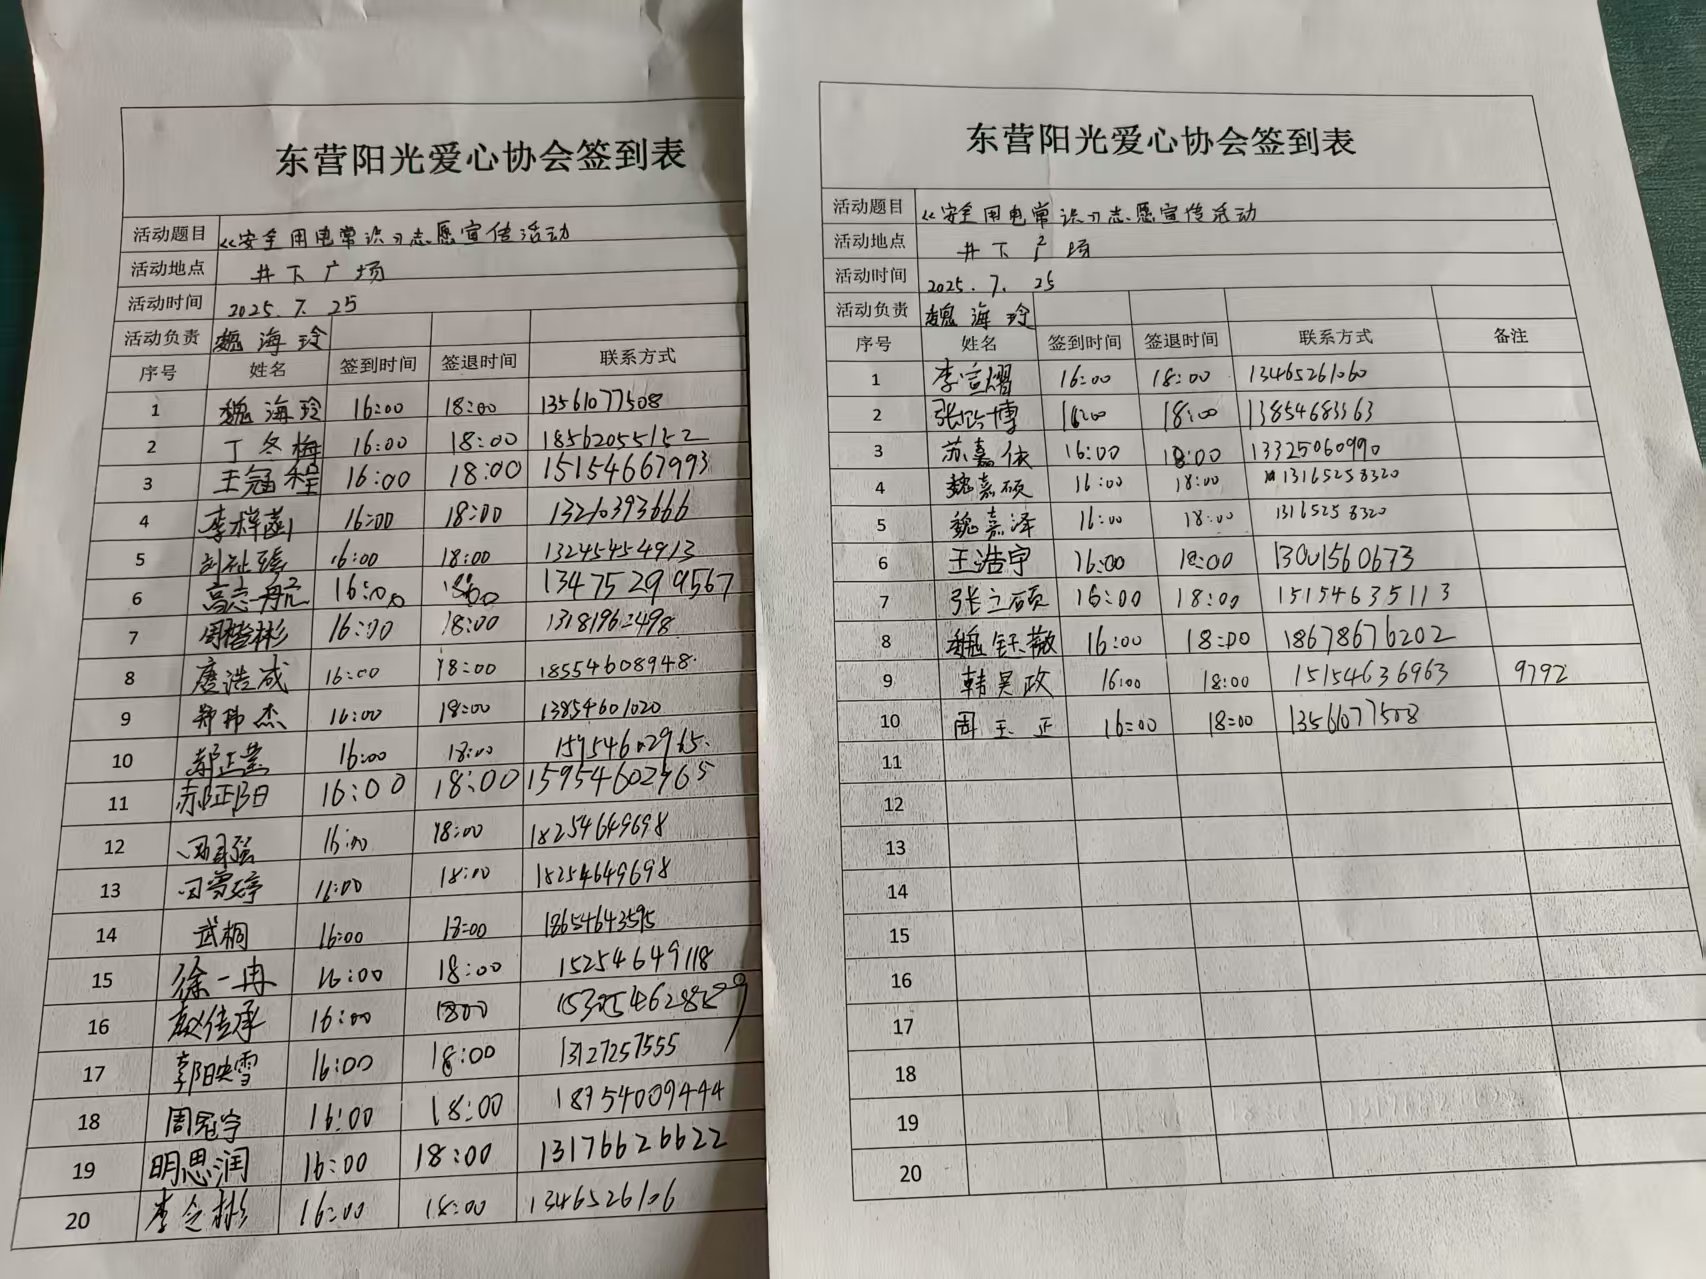 东营阳光爱心协会签到表
活动题目 《安全用电常识》志愿宣传活动
活动地点 井下广场
活动时间 2025.7.25
活动负责 魏海玲
序号 姓名 签到时间 签退时间 联系方式
1 魏海玲 16:00 18:00 13561077508
2 丁冬梅 16:00 18:00 18562055152
3 王冠程 16:00 18:00 15154667993
4 李梓菡 16:00 18:00 13210393666
5 16:00 18:00 13245454913
6 高志航 16:00 18:00 13475299567
7 周楷彬 16:00 18:00 13181962498
8 唐浩成 16:00 18:00 18554608948
9 郑玮杰 16:00 18:00 13854601020
10 16:00 18:00 15954602965
11 郝正阳 16:00 18:00 15954602965
12 16:00 18:00 18254649698
13 16:00 18:00 18254649698
14 武桐 16:00 18:00 18654643595
15 徐一冉 16:00 18:00 15254649118
16 赵传承 16:00 18:00
17 郭映雪 16:00 18:00 13127257555
18 周冠宇 16:00 18:00 18954009444
19 明思润 16:00 18:00 13176626622
20 李令彬 16:00 18:00 1346526106
东营阳光爱心协会签到表
活动题目 《安全用电常识》志愿宣传活动
活动地点 井下广场
活动时间 2025.7.25
活动负责 魏海玲
序号 姓名 签到时间 签退时间 联系方式 备注
1 李宣熠 16:00 18:00 13465261060
2 16:00 18:00 13854683363
3 苏嘉依 16:00 18:00 13325060990
4 魏嘉硕 16:00 18:00 13165258320
5 魏嘉泽 16:00 18:00 13165258320
6 王浩宇 16:00 18:00 13001560673
7 张立硕 16:00 18:00 15154635113
8 魏钰薇 16:00 18:00 18678676202
9 韩昊政 16:00 18:00 15154636963 9792
10 周玉正 16:00 18:00 13561077508
11
12
13
14
15
16
17
18
19
20